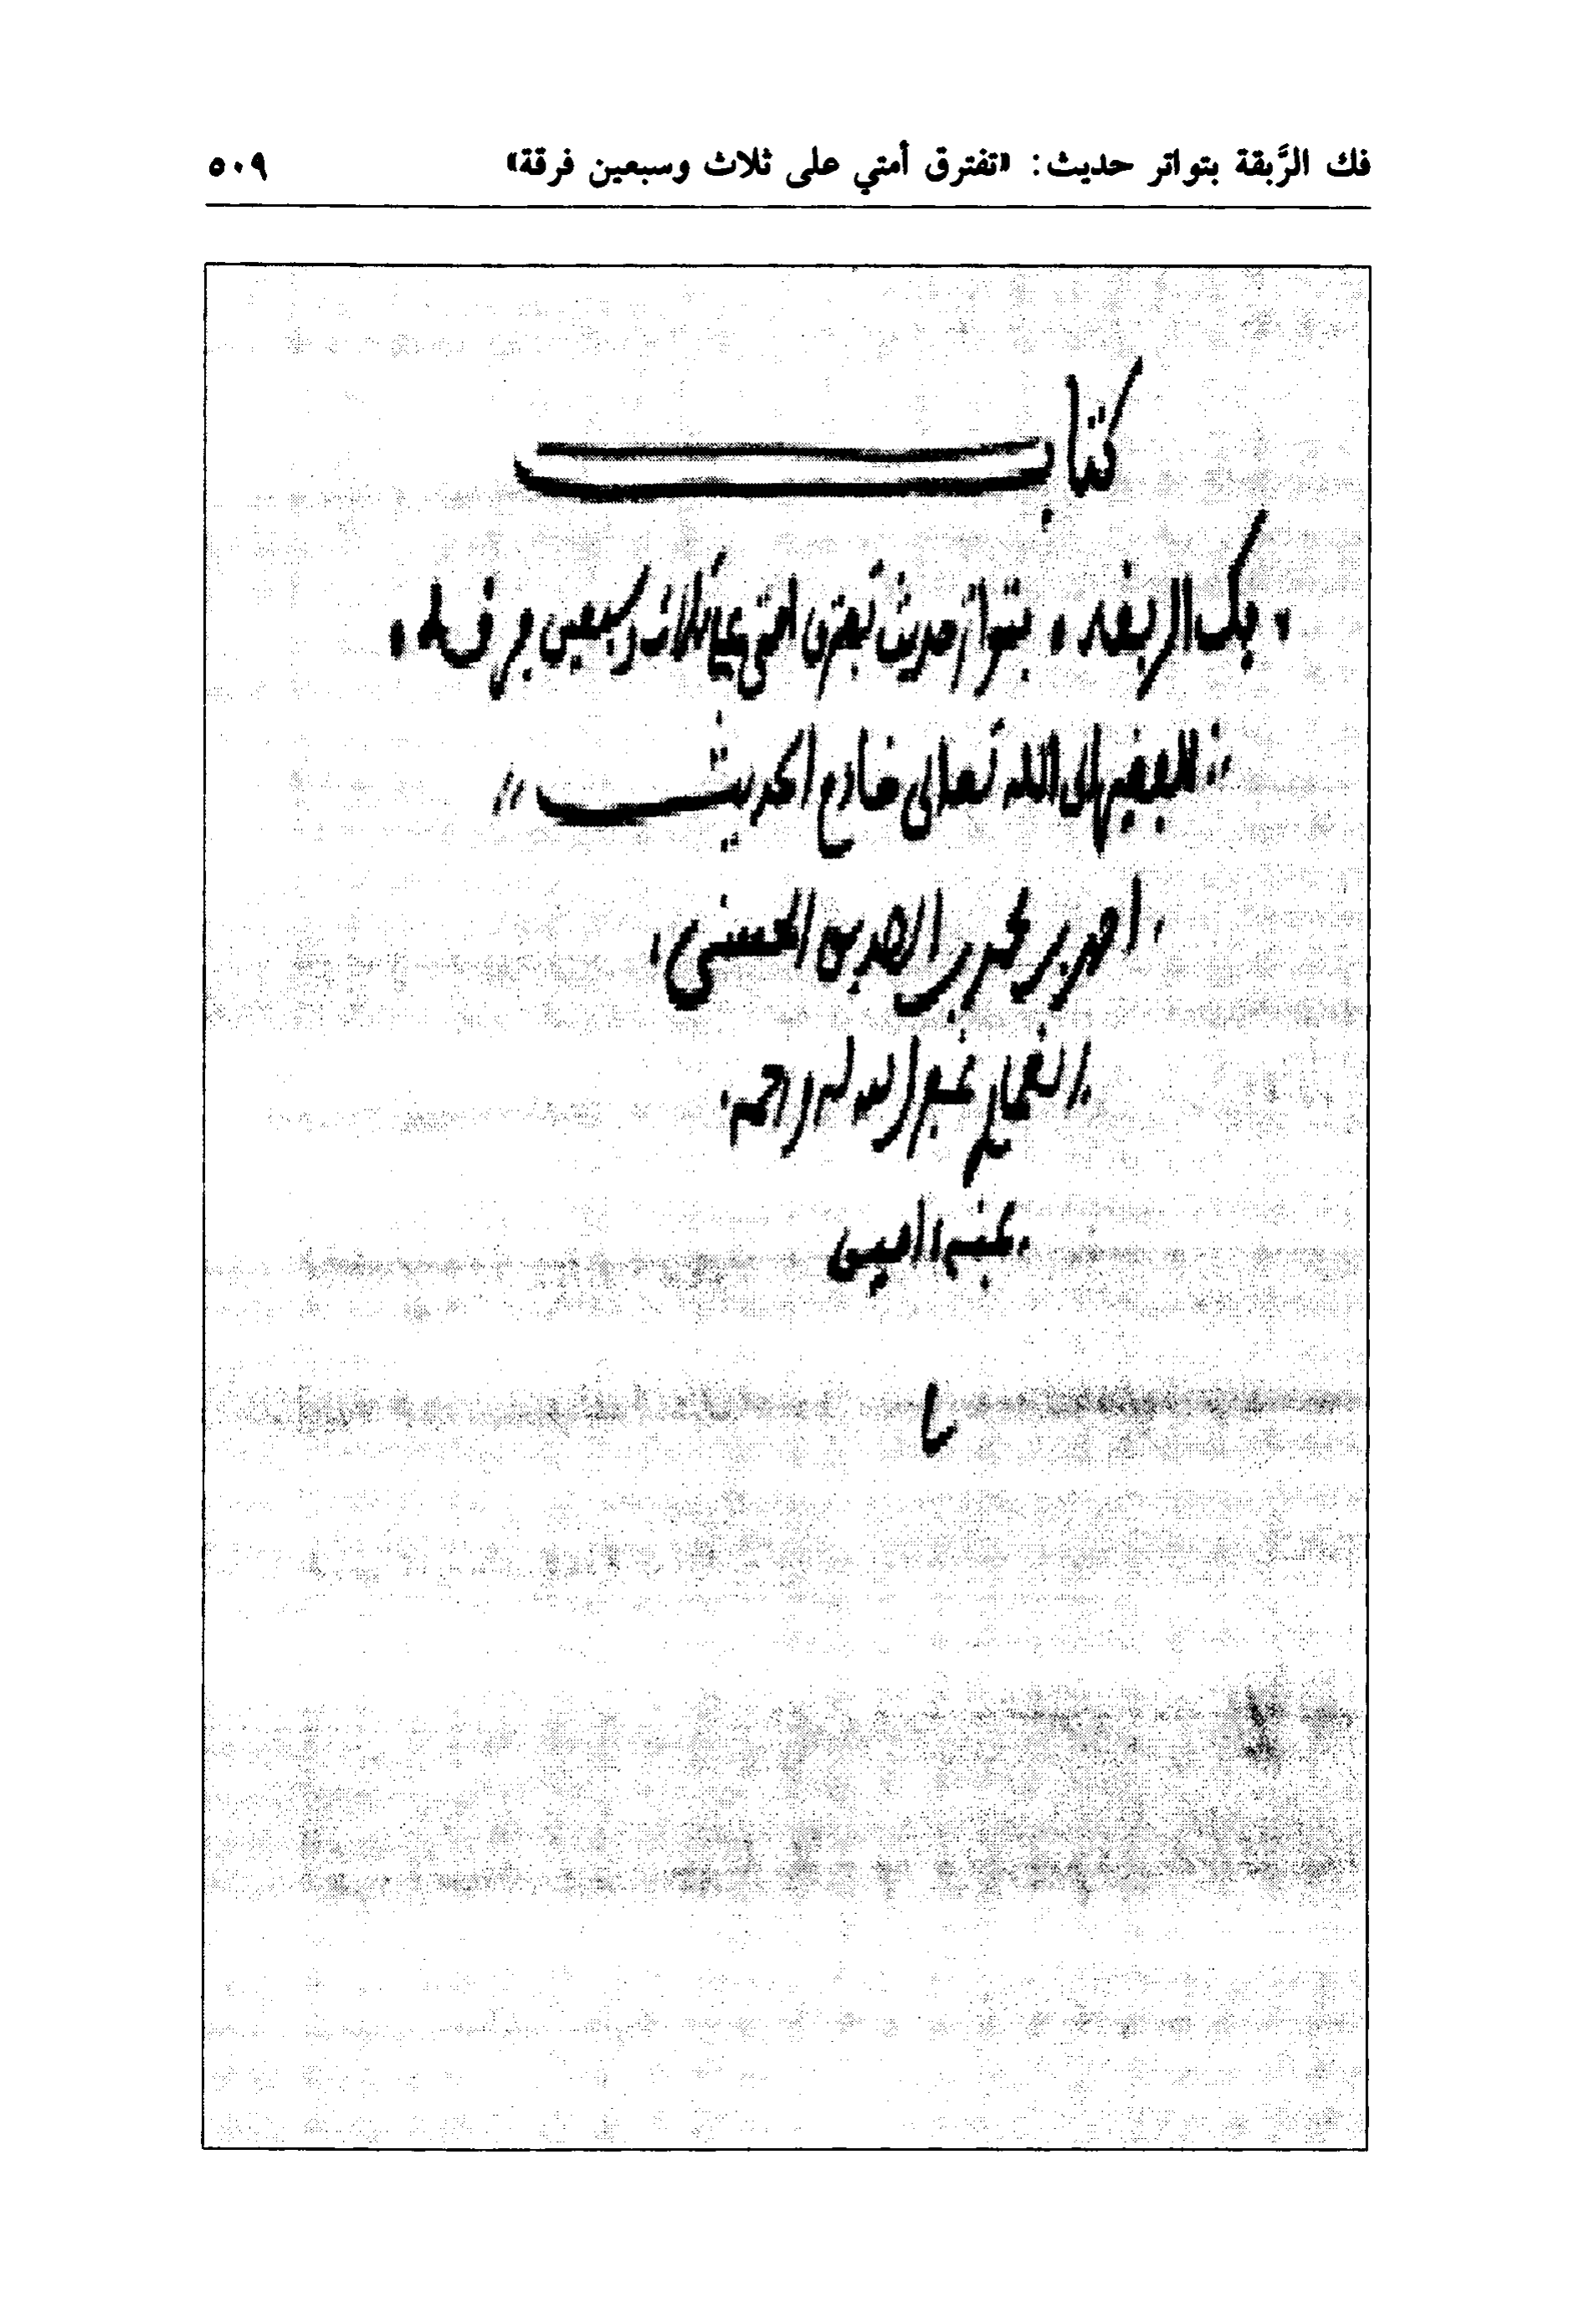 فك الرَّبقة بتواتر حديث: «تفترق أمتي على ثلاث وسبعين فرقة» ٥٠٩
كتاب
فك الربقه، بتواتر حديث تفترق امتي على ثلاث وسبعين فرقه،
للفقير الى الله تعالى خادم الحديث
احمد بن محمد بن الصديق الحسني
الغماري غفر الله له ورحمه
بمنه، امين